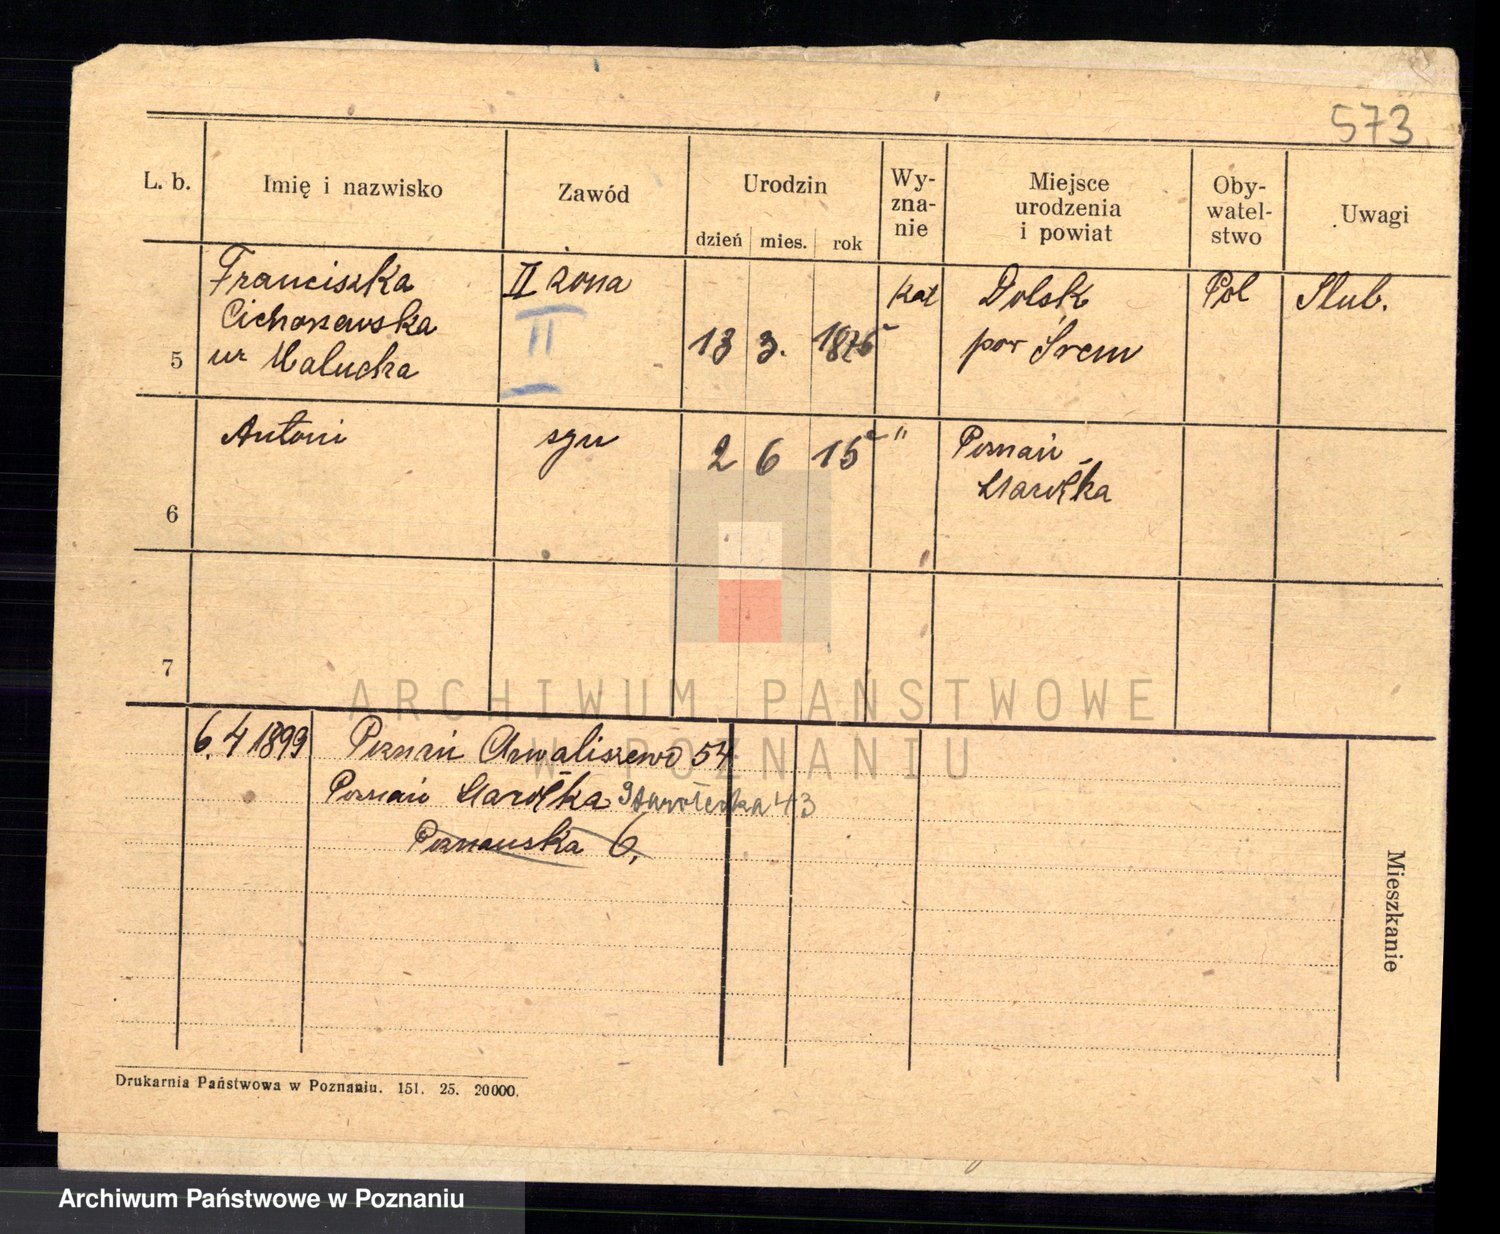 573
L. b.
Imię i nazwisko
Zawód
Urodzin
dzień mies. rok
Wy-
zna-
nie
Miejsce
urodzenia
i powiat
Oby-
watel-
stwo
Uwagi
5
Franciszka
Cichoszewska
ur
II żona
II
13 3. 1876
kat
Dolsk
pow Śrem
Pol
Slub.
6
Antoni
syn
2 6 15
"
Poznań
Starołka
7
ARCHIWUM PAŃSTWOWE
W POZNANIU
6.4 1899 Poznań Chwaliszewo 54
Poznań Starołka Starołecka 43
Poznańska 6.
Mieszkanie
Drukarnia Państwowa w Poznaniu. 151. 25. 20000.
Archiwum Państwowe w Poznaniu